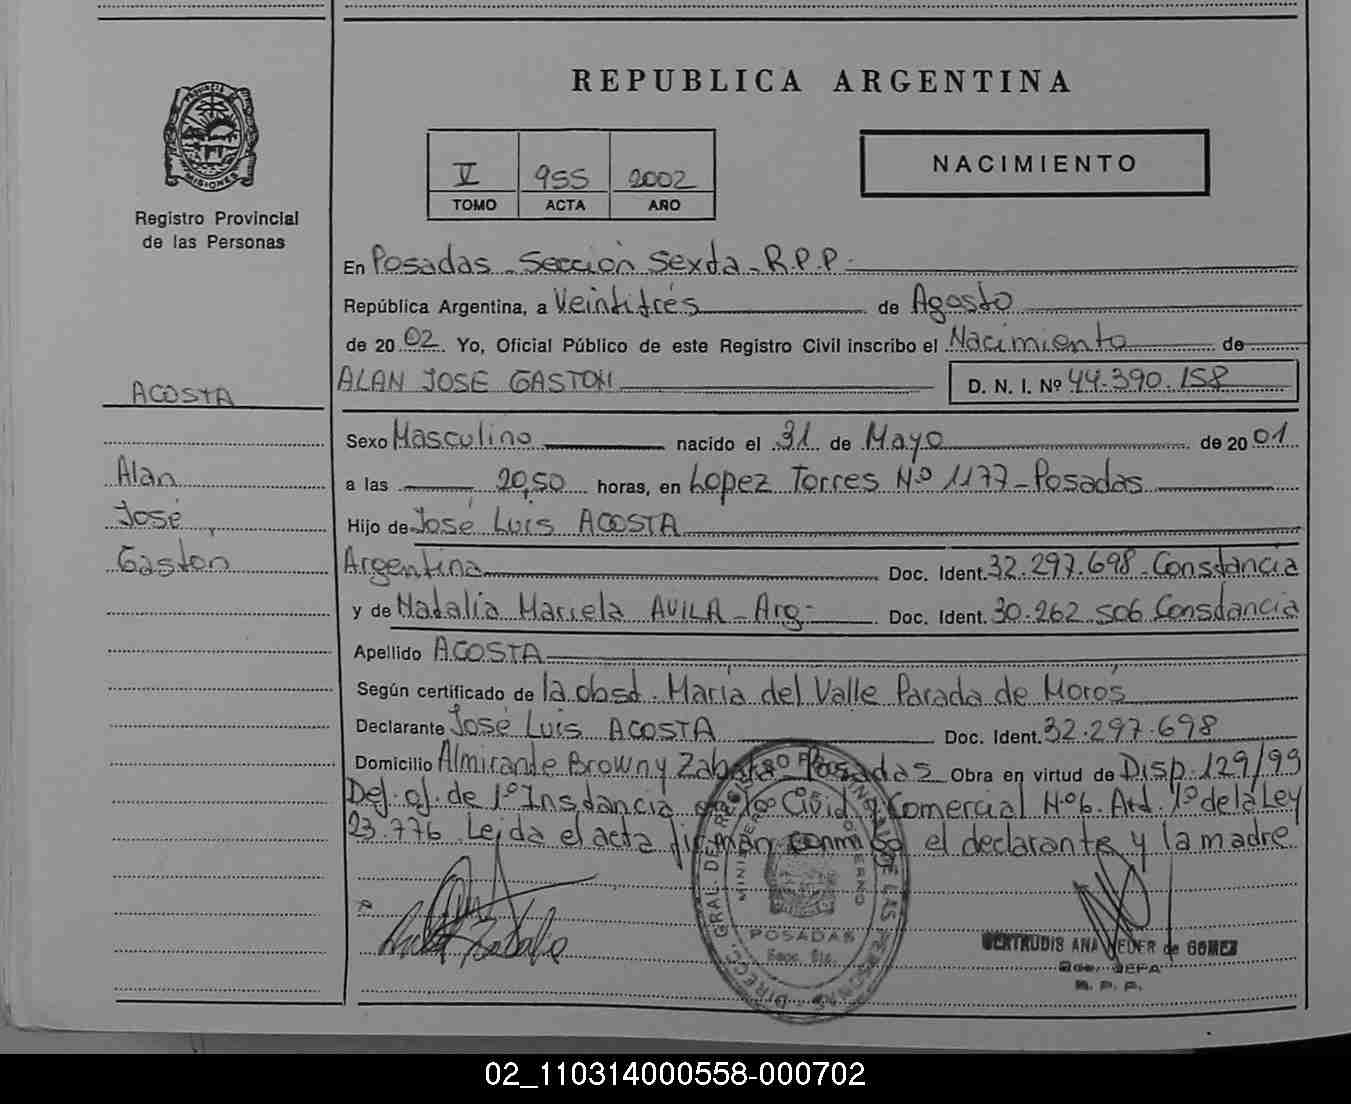 REPUBLICA ARGENTINA
PROVINCIA DE
MISIONES
Registro Provincial
de las Personas
V 955 2002
TOMO ACTA AÑO
NACIMIENTO
En Posadas - Sección Sexta - R.P.P.-
República Argentina, a Veintitrés de Agosto
de 20 02 Yo, Oficial Público de este Registro Civil inscribo el Nacimiento de
ALAN JOSE GASTON D. N. I. Nº 44.390.158
ACOSTA
Alan
José
Gastón
Sexo Masculino nacido el 31 de Mayo de 20 01
a las 20,50 horas, en Lopez Torres Nº 1177 - Posadas
Hijo de José Luis ACOSTA
Argentina Doc. Ident. 32.297.698 - Constancia
y de Natalia Marcela AVILA - Arg - Doc. Ident. 30.262.506 Constancia
Apellido ACOSTA
Según certificado de la obst. María del Valle Parada de Moros
Declarante José Luis ACOSTA Doc. Ident. 32.297.698
Domicilio Almirante Brown y Zabala - Posadas Obra en virtud de Disp. 129/99
Def. of. de 1º Instancia en lo Civil y Comercial Nº 6. Art. 1º de la Ley
23.776. Leida el acta firman conmigo el declarante y la madre
DIRECC. GRAL. DEL REGISTRO PROVINCIAL DE LAS PERSONAS
MINISTERIO DE GOBIERNO
POSADAS
GERTRUDIS ANA de GOMEZ
JEFA
R. P. P.
02_110314000558-000702